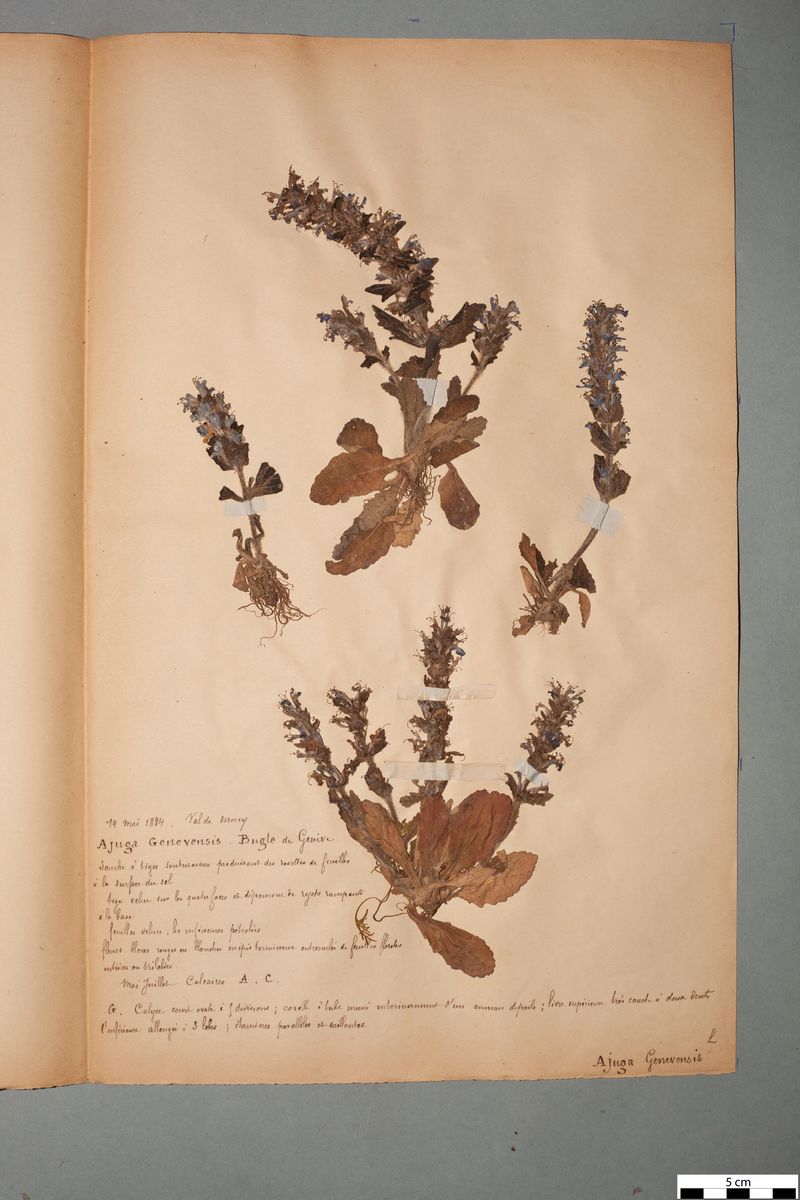 14 Mai 1894. Val de Morey
Ajuga Genevensis. Bugle de Genève
Souche à tiges souterraines produisant des rosettes de feuilles
à la surface du sol
tige velue sur les quatre faces et dépourvue de rejets rampants
à la base
feuilles velues, les inférieures pétiolées
fleurs bleues rouges ou blanches en épis terminaux entremêlés de feuilles florales
entières ou trilobées.
Mai Juillet Calcaires A. C.
G. Calyce court ovale à 5 divisions ; corolle à tube muni intérieurement d'un anneau de poils ; lèvre supérieure très courte à deux dents
l'inférieure allongée à 3 lobes ; étamines parallèles et saillantes.
L
Ajuga Genevensis
5 cm